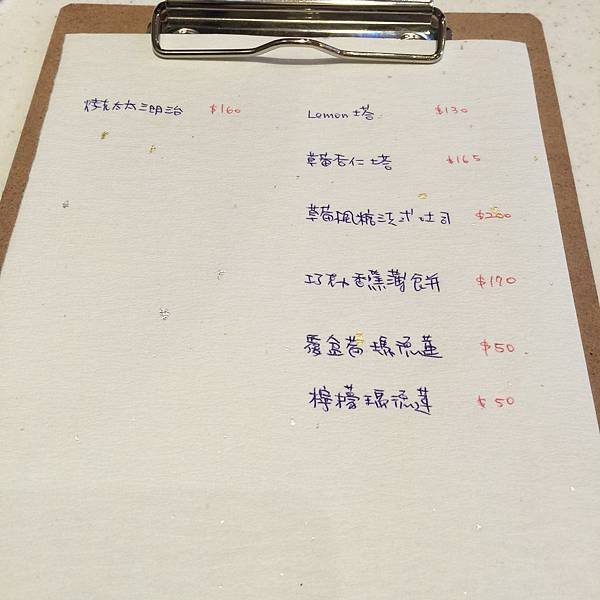 烤太太三明治 $160
Lemon塔 $130
草莓杏仁塔 $165
草莓楓糖法式吐司 $200
巧克力香蕉薄餅 $170
覆盆莓瑪德蓮 $50
檸檬瑪德蓮 $50